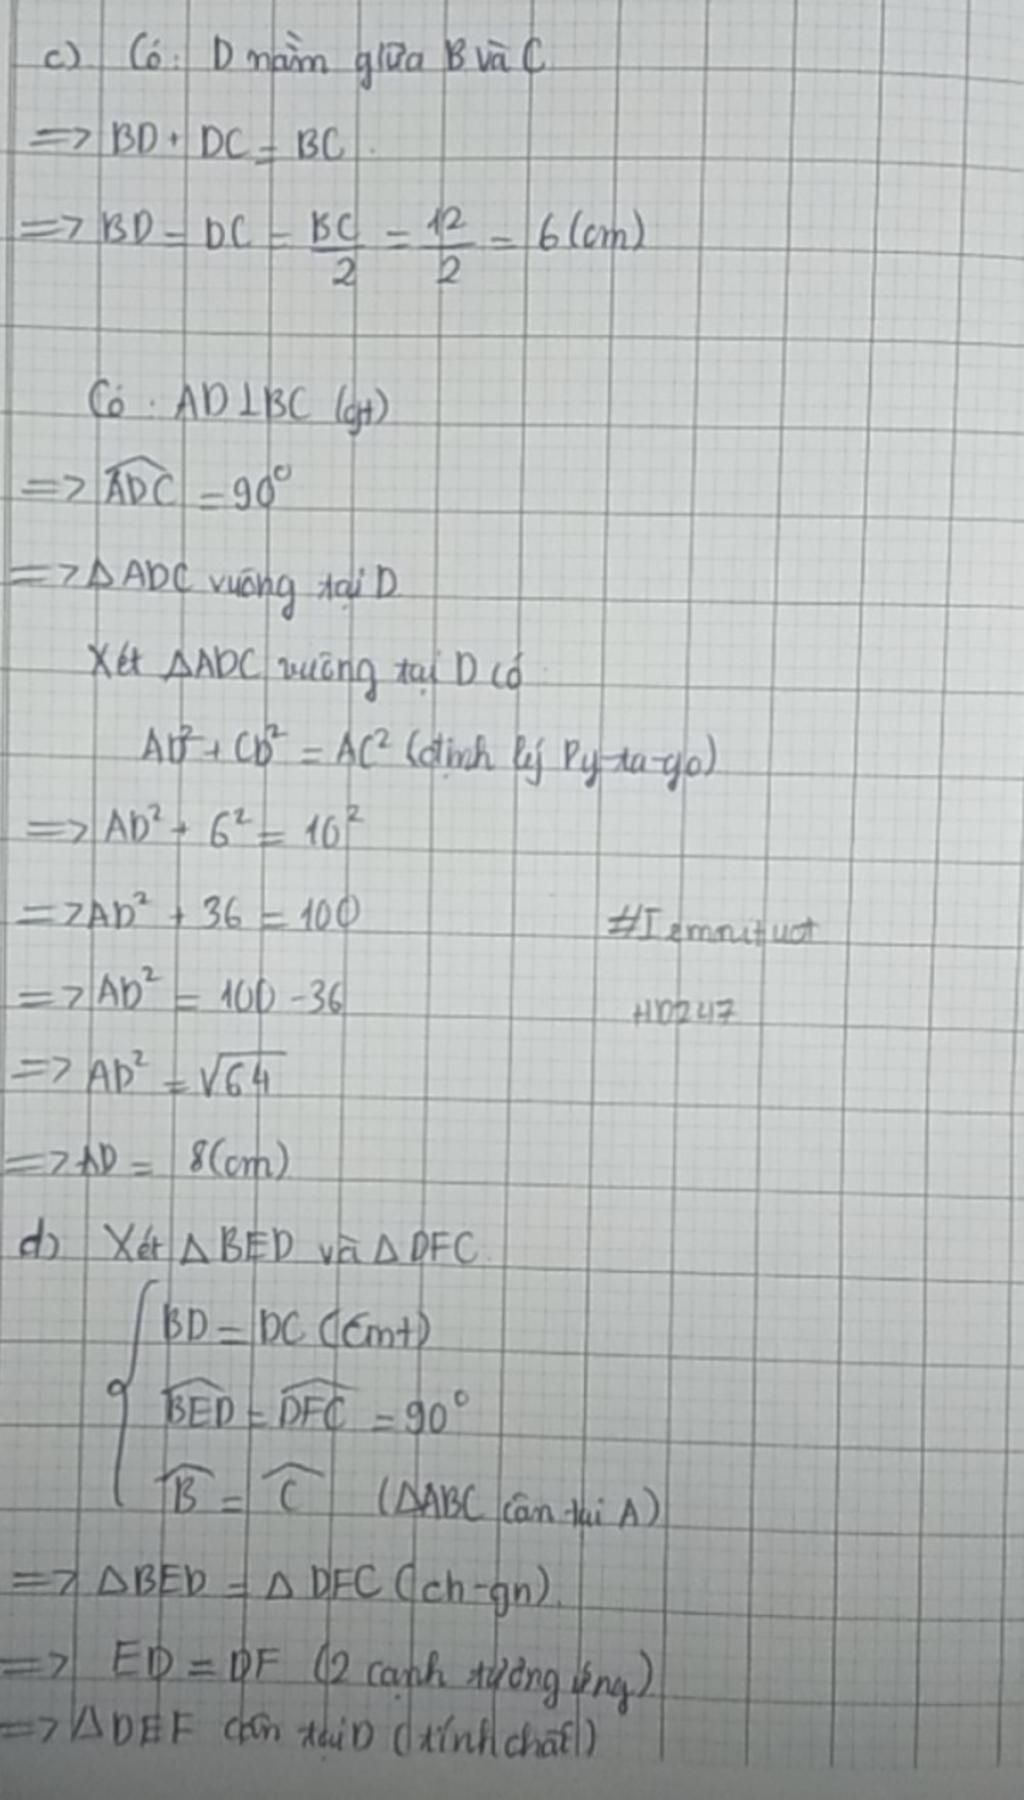 c) Có: D nằm giữa B và C
=> BD + DC = BC.
=> BD = DC = BC/2 = 12/2 = 6 (cm)
Có: AD⊥BC (gt)
=> \widehat{ADC} = 90°
=> ΔADC vuông tại D
Xét ΔADC vuông tại D có
AD² + CD² = AC² (định lý Py-ta-go)
=> AD² + 6² = 10²
=> AD² + 36 = 100
=> AD² = 100 - 36
=> AD² = √64
=> AD = 8 (cm)
d) Xét ΔBED và ΔDFC.
{ BD = DC (cmt)
\widehat{BED} = \widehat{DFC} = 90°
\widehat{B} = \widehat{C} (ΔABC cân tại A)
=> ΔBED = ΔDFC (ch-gn).
=> ED = DF (2 cạnh tương ứng)
=> ΔDEF cân tại D (tính chất)